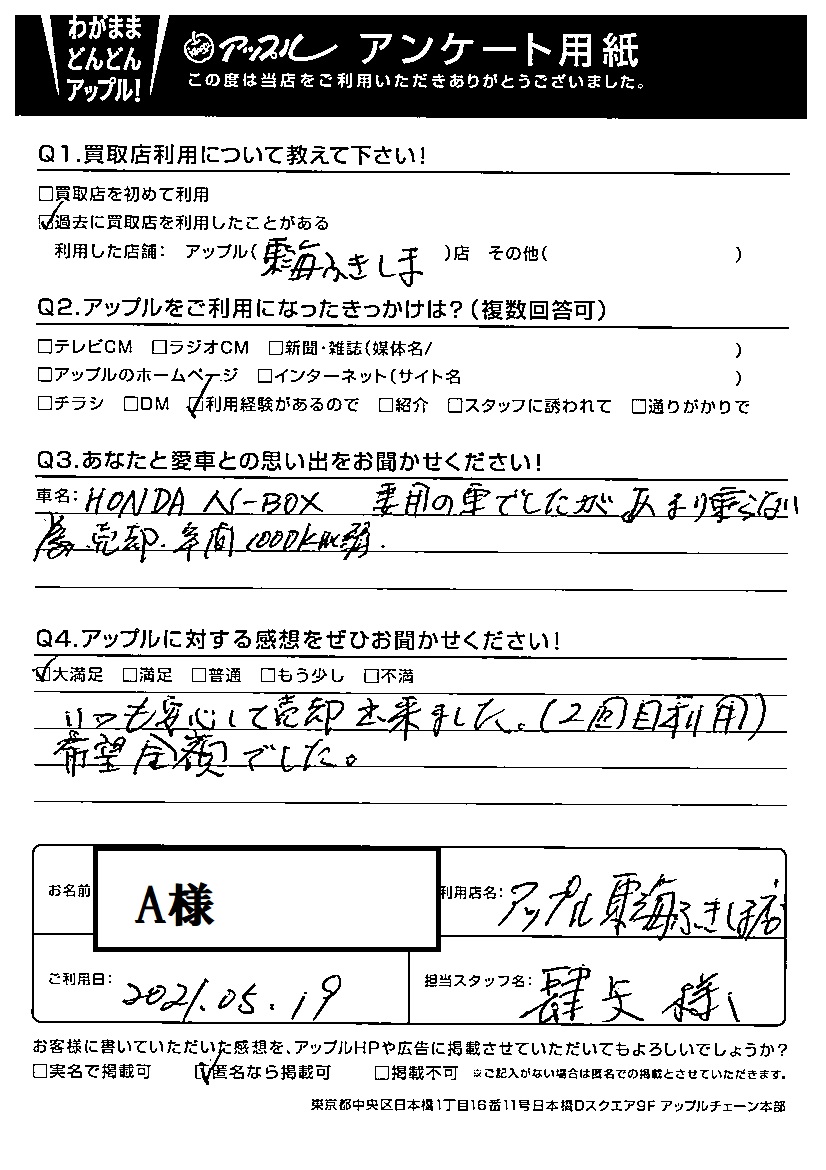 わがまま
どんどん
アップル!
アップル アンケート用紙
この度は当店をご利用いただきありがとうございました。
Q1.買取店利用について教えて下さい!
□買取店を初めて利用
☑過去に買取店を利用したことがある
利用した店舗: アップル(東海ふきしま)店 その他( )
Q2.アップルをご利用になったきっかけは?(複数回答可)
□テレビCM □ラジオCM □新聞・雑誌(媒体名/ )
□アップルのホームページ □インターネット(サイト名 )
□チラシ □DM ☑利用経験があるので □紹介 □スタッフに誘われて □通りがかりで
Q3.あなたと愛車との思い出をお聞かせください!
車名: HONDA N-BOX 妻用の車でしたがあまり乗らない
為売却.年間1000km弱.
Q4.アップルに対する感想をぜひお聞かせください!
☑大満足 □満足 □普通 □もう少し □不満
いつも安心して売却出来ました。(2回目利用)
希望金額でした。
お名前 A様 利用店名: アップル東海ふきしま店
ご利用日: 2021.05.19 担当スタッフ名: 様
お客様に書いていただいた感想を、アップルHPや広告に掲載させていただいてもよろしいでしょうか?
□実名で掲載可 ☑匿名なら掲載可 □掲載不可 ※ご記入がない場合は匿名での掲載とさせていただきます。
東京都中央区日本橋1丁目16番11号日本橋Dスクエア9F アップルチェーン本部